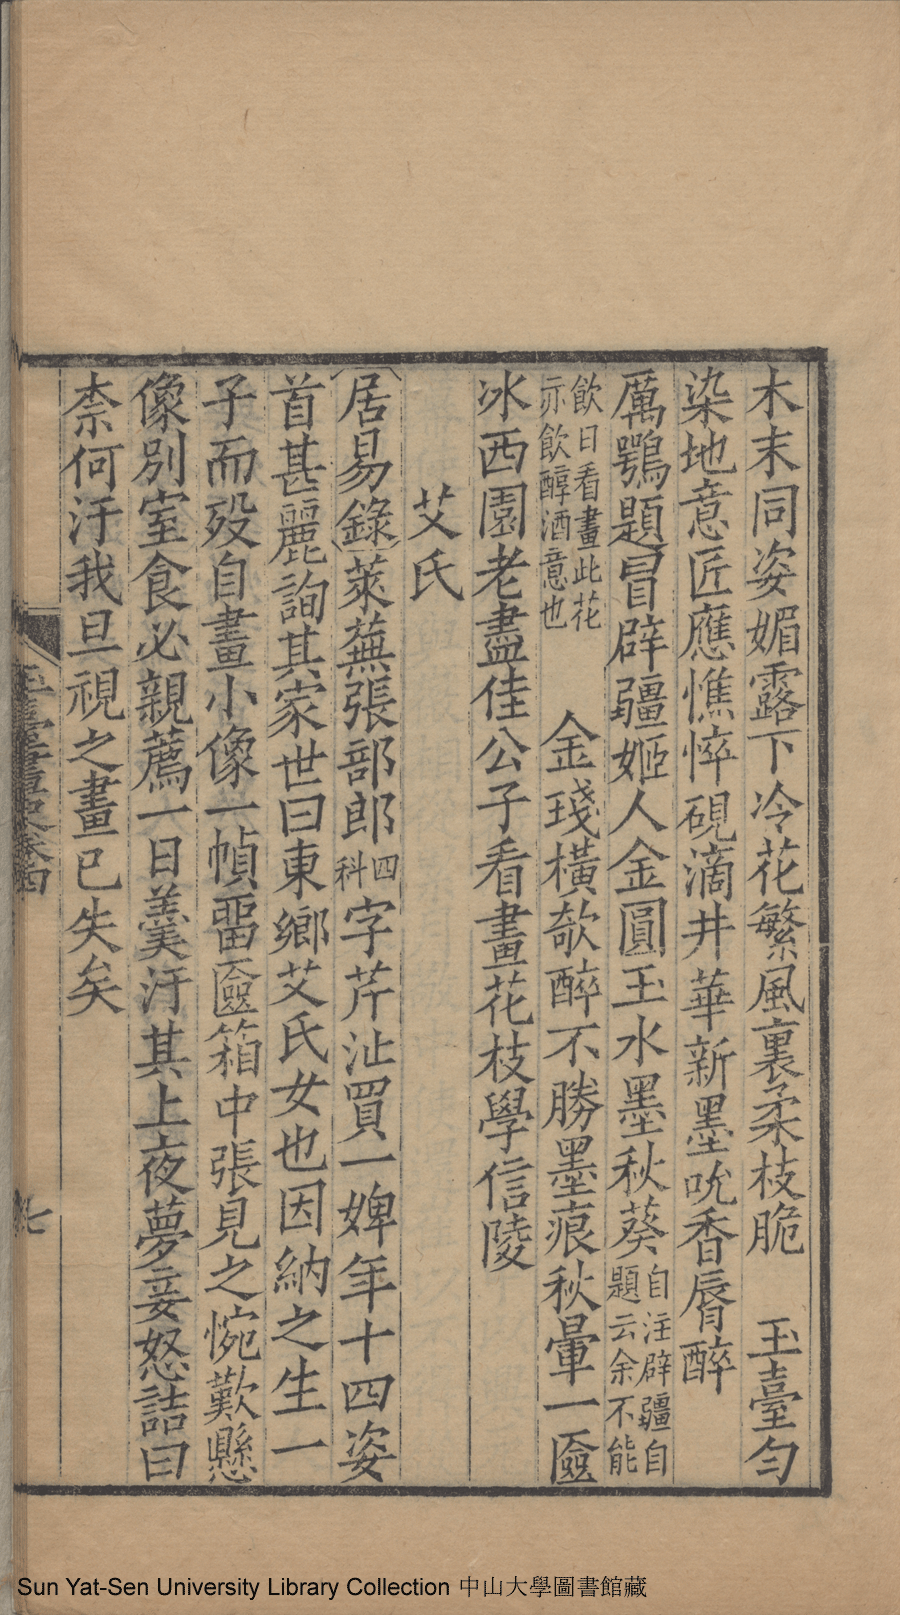 木末同姿媚露下冷花繁風裏柔枝脆　玉臺勻
染地意匠應憔悴硯滴井華新墨吮香脣醉
厲鶚題冒辟疆姬人金圓玉水墨秋葵自注辟疆自題云余不能
飲日看畫此花亦飲醇酒意也　金琖橫欹醉不勝墨痕秋暈一匳
冰西園老盡佳公子看畫花枝學信陵
艾氏
居易錄萊蕪張部郎四科字芹沚買一婢年十四姿
首甚麗詢其家世曰東鄉艾氏女也因納之生一
子而歿自畫小像一幀畱匳箱中張見之惋歎懸
像別室食必親薦一日羹汙其上夜夢妾怒詰曰
柰何汙我旦視之畫已失矣
玉臺畫史卷四
七
Sun Yat-Sen University Library Collection 中山大學圖書館藏